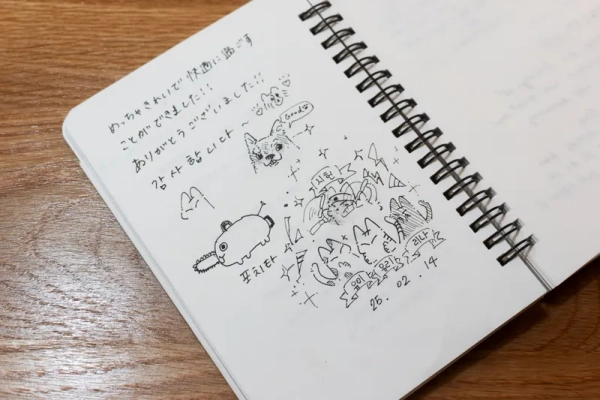 めっちゃきれいで快適に過ごす
ことができました!!
ありがとうございました!!
감사합니다~
Good
포치타
지현
유나
리나
25. 02. 14